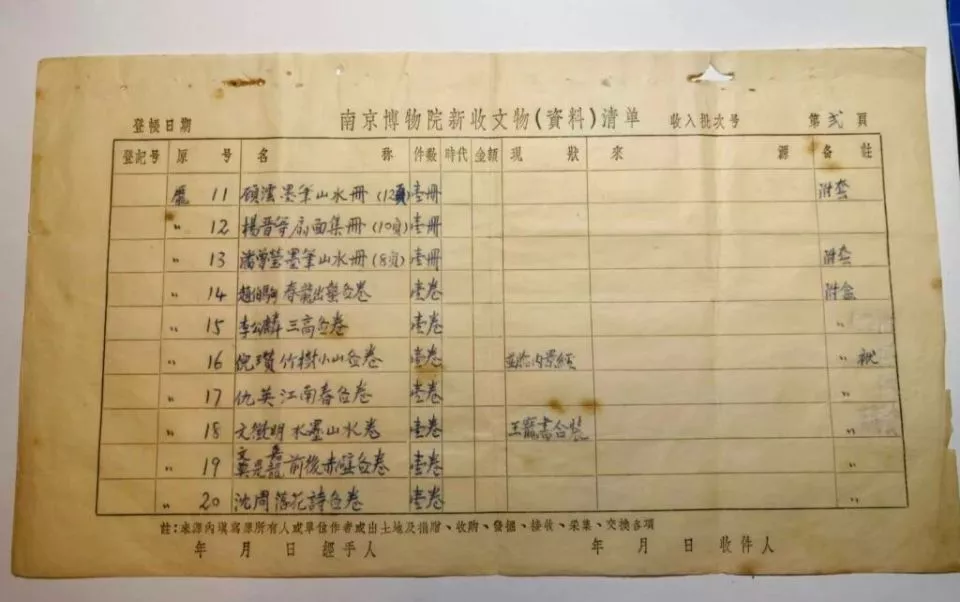 登帳日期 南京博物院新收文物(資料)清單 收入批次号 第弍頁
登記号 原号 名称 件数 時代 金額 現狀 來源 备註
龐 11 顾澐墨筆山水冊(12頁) 壹冊 附套
〃 12 楊晋等扇面集冊(10頁) 壹冊
〃 13 潘曾瑩墨筆山水冊(8頁) 壹冊 附套
〃 14 趙伯駒春龍出蟄畐卷 壹卷 附盒
〃 15 李公麟三高畐卷 壹卷 〃
〃 16 倪瓚竹樹小山畐卷 壹卷 〃
〃 17 仇英江南春畐卷 壹卷 〃
〃 18 文徵明水墨山水卷 壹卷 王寵書合裝 〃
〃 19 文嘉 莫是龍前後赤壁畐卷 壹卷 〃
〃 20 沈周落花詩畐卷 壹卷 〃
註:來源內填寫原所有人或單位作者或出土地及捐贈、收購、發掘、接收、采集、交換各項
年 月 日 經手人 年 月 日 收件人